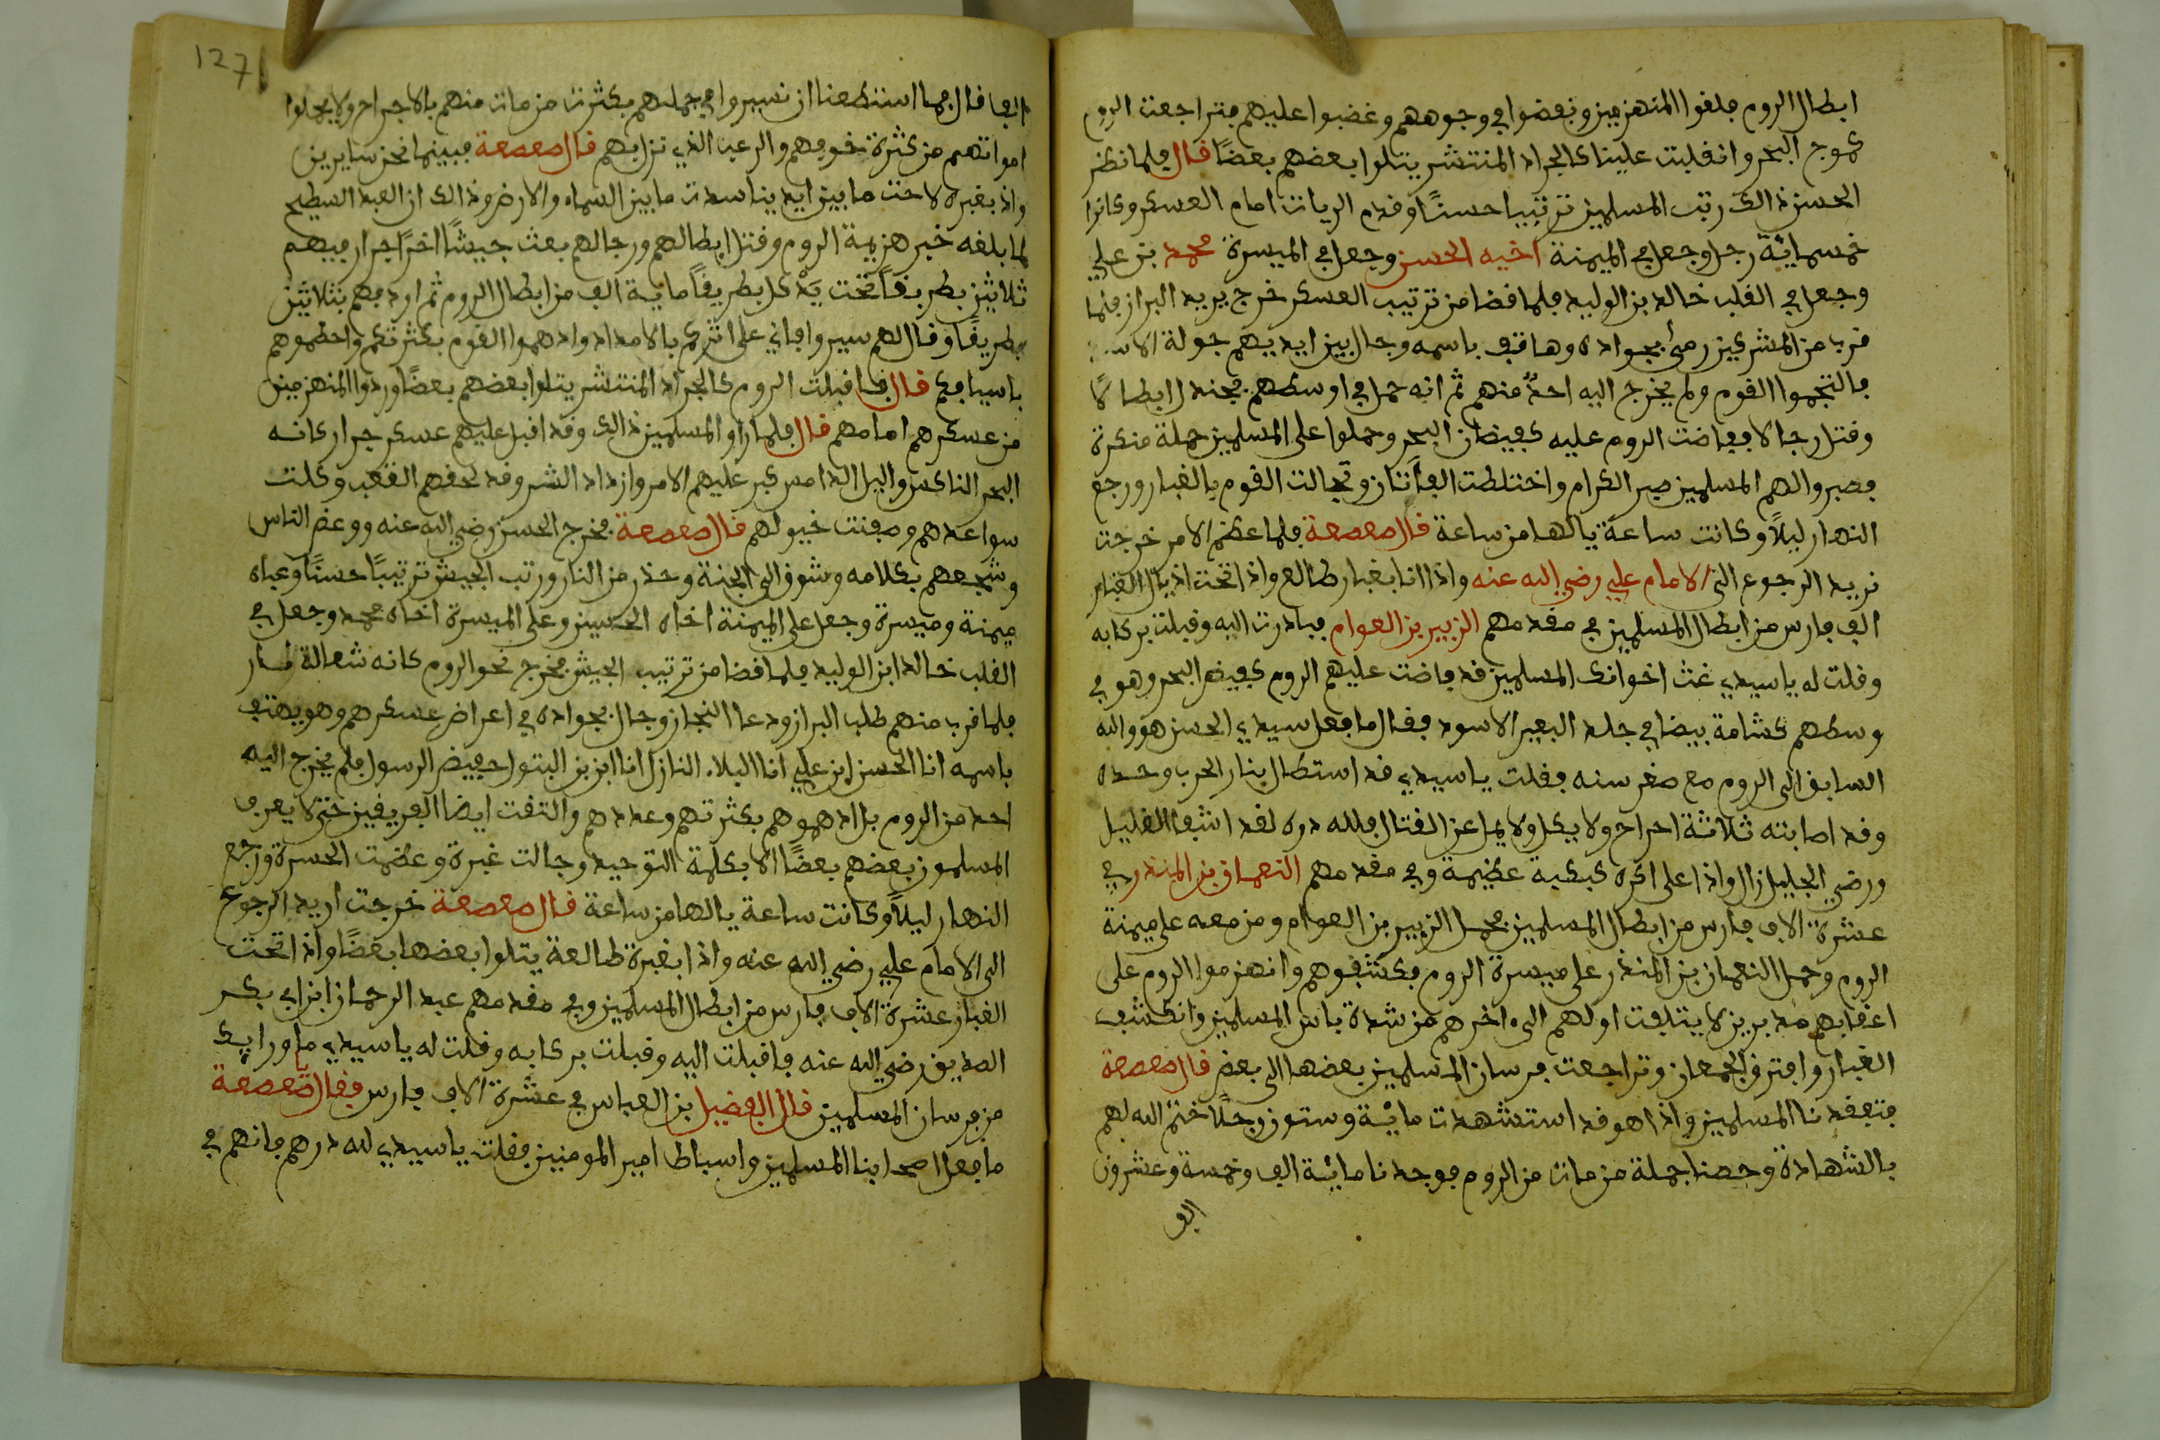 ابطال الروم فلفوا المنهزمين ونعضوا في وجوههم وغضبوا عليهم فتراجعت الروم
كموج البحر وانقلبت علينا كالجراد المنتشر يتلوا بعضهم بعضًا قال فلما نظر
الحسن ذالك رتب المسلمين ترتيبا حسنًا وقدم الريات امام العسكر وكانوا
خمسمائة رجل وجعل في الميمنة اخيه الحسن وجعل في الميسرة محمد بن علي
وجعل في القلب خالد بن الوليد فلما فضا من ترتيب العسكر خرج يريد البراز فلما
قرب من المشركين رمى بجواده وهاتف باسمه وجال بين ايديهم جولة الاسد
فالتجموا القوم ولم يخرج اليه احدٌ منهم ثم انه حمل في اوسطهم فجندل ابطالًا
وقتل رجالا ففاضت الروم عليه كفيضان البحر وحملوا على المسلمين حملة منكرة
فصبروا لهم المسلمين صبر الكرام واختلطت الفأتان وتجالت القوم بالغبار ورجع
النهار ليلًا وكانت ساعة يالها من ساعة قال صعصعة فلما عظم الامر خرجت
نريد الرجوع الى الامام علي رضي الله عنه واذا انا بغبار طالع واذا تحت اذيال الغبار
الف فارس من ابطال المسلمين في مقدمهم الزبير بن العوام فبادرت اليه وقبلت بركابه
وقلت له ياسيدي غث اخوانك المسلمين قد فاضت عليهم الروم كفيض البحر وهو في
وسطهم كشامة بيضا في جلد البعير الاسود فقال ما فعل سيدي الحسن هو والله
السابق الى الروم مع صغر سنه فقلت ياسيدي قد استطال بنار الحرب وحده
وقد اصابته ثلاثة اجراح ولا يكل ولا يمل عن القتال فلله دره لقد اشفا الغليل
ورضي الجليل زال واذا على اثره كبكبة عظيمة وفي مقدمهم النعمان بن المنذر في
عشرة الاف فارس من ابطال المسلمين فحمل الزبير بن العوام ومن معه على ميمنة
الروم وحمل النعمان بن المنذر على ميسرة الروم فكشفوهم وانهزموا الروم على
اعقابهم مدبرين لا يتلفت اولهم الى اخرهم من شدة باس المسلمين وانكشف
الغبار وافترق الجمعان وتراجعت فرسان المسلمين بعضها الى بعض قال صعصعة
فتفقدنا المسلمين واذا هو قد استشهدت مائة وستون رجلًا ختم الله لهم
بالشهادة وحصنا جملة من مات من الروم فوجدنا مائة الف وخمسة وعشرون
الف
127
الفا قال فما استطعنا ان نسيروا في جملهم بكثرت من مات منهم بالاجراح ولا يحملوا
امواتهم من كثرة خوفهم والرعب الذي نزل بهم قال صعصعة فبينما نحن سايرين
واذ بغبرة لاحت ما بين ايدينا سدت ما بين السماء والارض وذالك ان العبد السطيح
لما بلغه خبر هزيمة الروم وقتل ابطالهم ورجالهم بعث جيشًا اخرًا جرار فيهم
ثلاثين بطريقًا تحت يد كل بطريقًا ماية الف من ابطال الروم ثم اردفهم بثلاثين
بطريقًا وقال لهم سيروا فاني على اثركم بالامداد وادهموا القوم بكثرتكم واحطموهم
باسيافكم قال فاقبلت الروم كالجراد المنتشر يتلوا بعضهم بعضًا وردوا المنهزمين
من عسكرهم امامهم قال فلما راو المسلمين ذالك وقد اقبل عليهم عسكر جرار كانه
البحر الناكس واليل الدامس كبر عليهم الامر وازداد الشر وقد لحقهم التعب وكلت
سواعدهم وصفنت خيولهم قال صعصعة فخرج الحسن رضي الله عنه ووعض الناس
وشجعهم بكلامه وشوق الى الجنة وحذر من النار ورتب الجيش ترتيبًا حسنًا وعباه
ميمنة وميسرة وجعل على الميمنة اخاه الحسين وعلى الميسرة اخاه محمد وجعل في
القلب خالد ابن الوليد فلما فضا من ترتيب الجيش فخرج نحو الروم كانه شعالة نار
فلما قرب منهم طلب البراز ودعا النجاز وجال بجواده في اعراض عسكرهم وهو يهتف
باسمه انا الحسن ابن علي انا البلاء النازل انا ابن بن البتول حفيض الرسول فلم يخرج اليه
احد من الروم بل ادهموهم بكثرتهم وعددهم والتفت ايضا الفريقين حتى لا يعرف
المسلمون بعضهم بعضًا الا بكلمة التوحيد وجالت غبرة وعظمت الحسرة ورجع
النهار ليلًا وكانت ساعة يالها من ساعة قال صعصعة خرجت اريد الرجوع
الى الامام علي رضي الله عنه واذا بغبرة طالعة يتلوا بعضها بعضًا واذا تحت
الغبار عشرة الاف فارس من ابطال المسلمين وفي مقدمهم عبد الرحمان ابن ابي بكر
الصديق رضي الله عنه فاقبلت اليه وقبلت بركابه وقلت له ياسيدي ما وراءك
من فرسان المسلمين قال الفضيل بن العباس في عشرة الاف فارس فقال يا صعصعة
ما فعل اصحابنا المسلمين واسباط امير المومنين فقلت ياسيدي لله درهم فانهم في